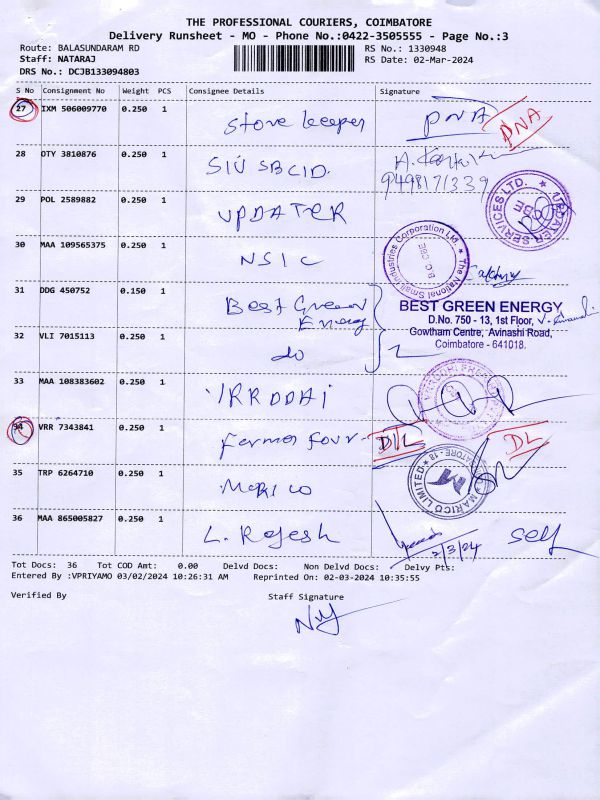 THE PROFESSIONAL COURIERS, COIMBATORE
Delivery Runsheet - MO - Phone No.:0422-3505555 - Page No.:3
Route: BALASUNDARAM RD
RS No.: 1330948
Staff: NATARAJ
RS Date: 02-Mar-2024
DRS No.: DCJB133094803
S No Consignment No Weight PCS Consignee Details Signature
27 IXM 506009770 0.250 1 Store keeper DNA DNA
28 OTY 3810876 0.250 1 SIU SBCID.
9498171339
29 POL 2589882 0.250 1 UPDATER
UPDATER SERVICES LTD.
CBE
30 MAA 109565375 0.250 1 NSIC
The National Small Industries Corporation Ltd.
B O CBE
31 DDG 450752 0.150 1 Best Green
Energy
BEST GREEN ENERGY
D.No. 750 - 13, 1st Floor,
Gowtham Centre, Avinashi Road,
Coimbatore - 641018.
32 VLI 7015113 0.250 1 do
33 MAA 108383602 0.250 1
34 VRR 7343841 0.250 1 Farmer four DL DL
35 TRP 6264710 0.250 1 Marico
MARICO LIMITED
36 MAA 865005827 0.250 1 L. Rajesh
2/3/24 self
Tot Docs: 36 Tot COD Amt: 0.00 Delvd Docs: Non Delvd Docs: Delvy Pts:
Entered By :VPRIYAMO 03/02/2024 10:26:31 AM Reprinted On: 02-03-2024 10:35:55
Verified By Staff Signature